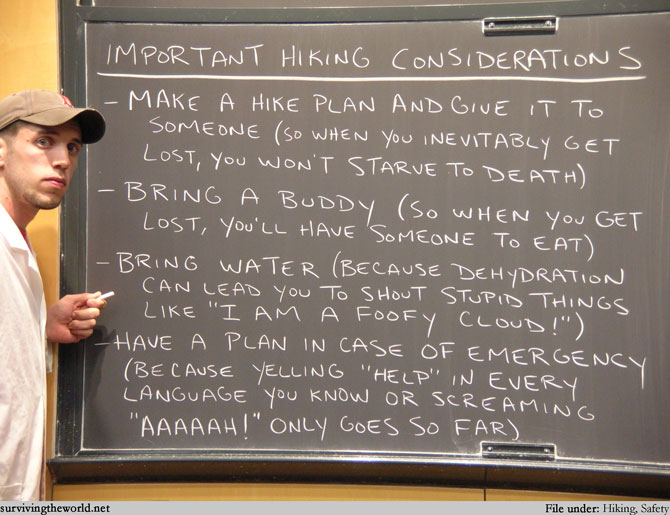 IMPORTANT HIKING CONSIDERATIONS
- MAKE A HIKE PLAN AND GIVE IT TO
SOMEONE (SO WHEN YOU INEVITABLY GET
LOST, YOU WON'T STARVE TO DEATH)
- BRING A BUDDY (SO WHEN YOU GET
LOST, YOU'LL HAVE SOMEONE TO EAT)
- BRING WATER (BECAUSE DEHYDRATION
CAN LEAD YOU TO SHOUT STUPID THINGS
LIKE "I AM A FOOFY CLOUD!")
- HAVE A PLAN IN CASE OF EMERGENCY
(BECAUSE YELLING "HELP" IN EVERY
LANGUAGE YOU KNOW OR SCREAMING
"AAAAAH!" ONLY GOES SO FAR)
survivingtheworld.net
File under: Hiking, Safety